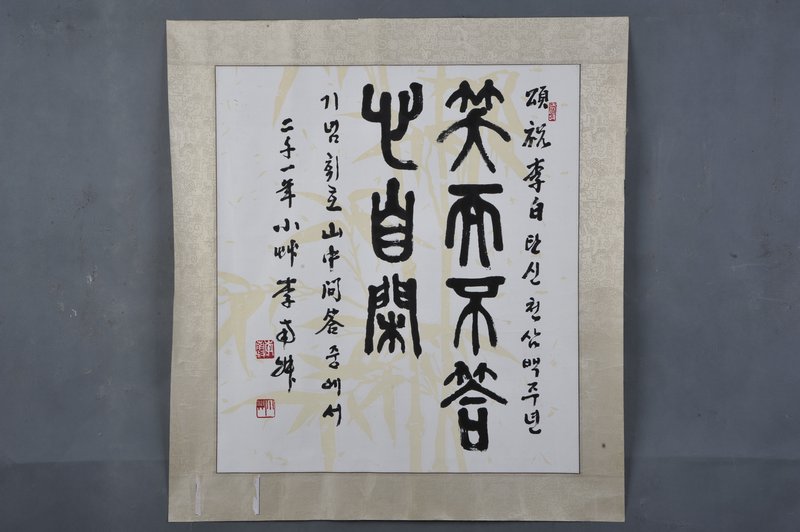 頌祝李白탄신천삼백주년
笑而不答
心自閑
기념회호山中問答 중에서
二千一年 小艸 李南